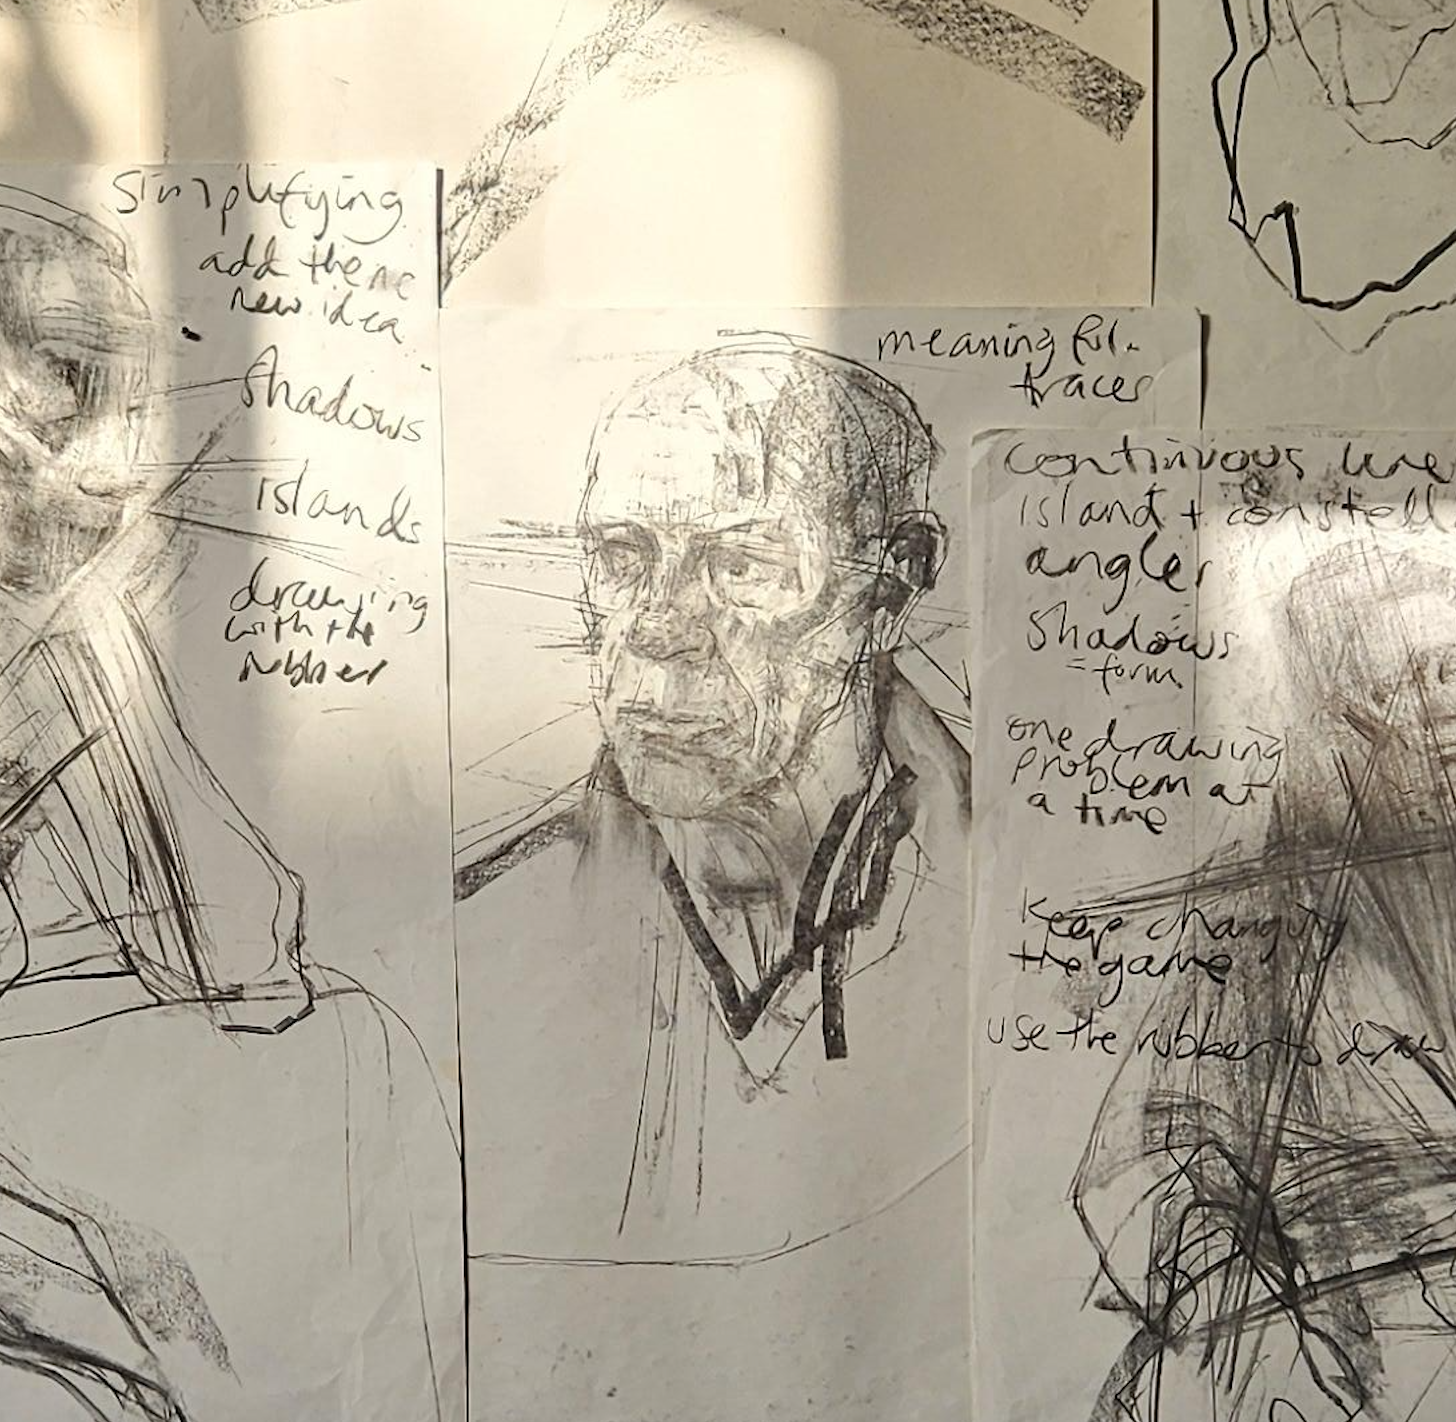 Simplifying
add the ne
new idea
Shadows
Islands
drawing
with the
rubber
meaningful
traces
continuous line
island + constell
angles
Shadows
= form
one drawing
problem at
a time
Keep changing
the game
use the rubber to draw